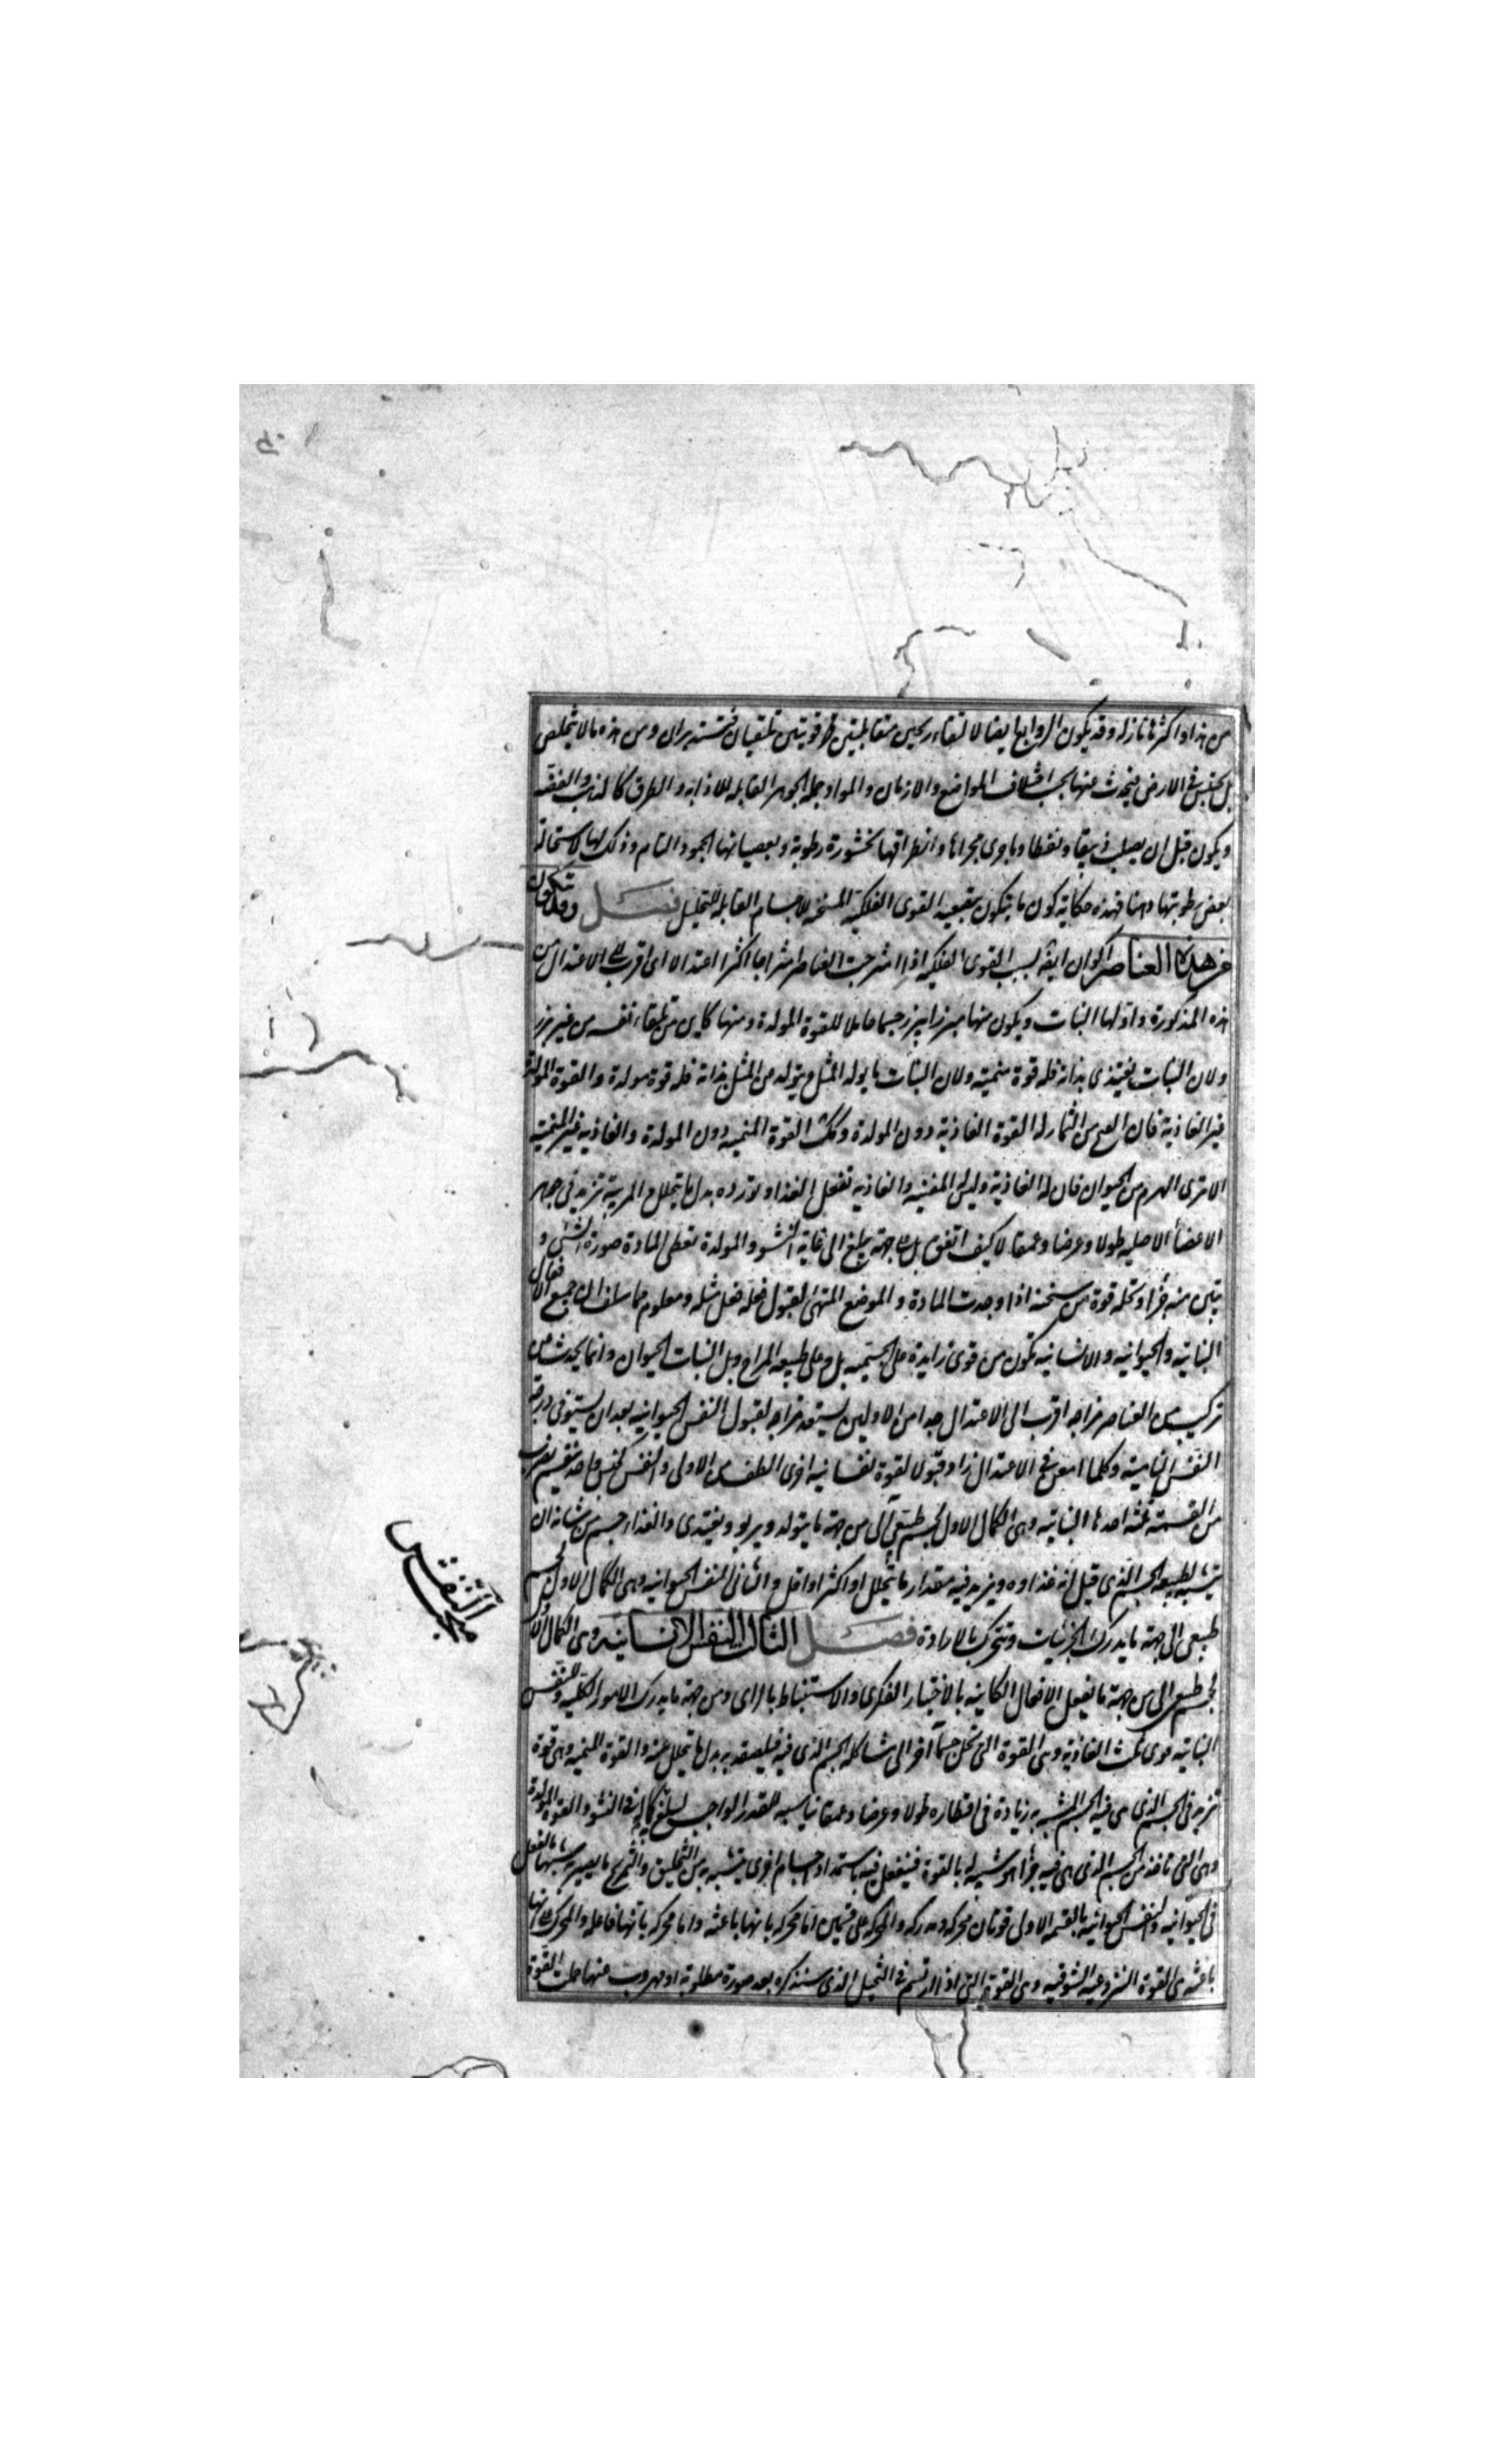 من هذا واكثرها نازله وقد يكون الزوابع ايضا لالتقاء ريحين متقابلتين قويتين تلتقيان فتستديران ومن هذه مالا يتخلص
بل يحتبس في الارض فيحدث عنها بحسب اختلاف المواضع والازمان والمواد جملة الجوهر القابله للاذابه والطرق كالذهب والفضه
ويكون قبل ان يصلب زيبقا ونفطا وما جرى مجراها وانطراقها لخثورة رطوبة ولعصيانها الجمود التام وذلك لها لاستحالة
بعض رطوبتها دهنا فهذه حكاية كون ما يتكون بتبعيه القوى الفلكية المسخنه للاجسام القابله للتحليل فصل وقد تتكون
من هذه العناصر اكوان ايضا بسبب القوى الفلكيه اذا امتزجت العناصر امتزاجا اكثر اعتدالا اى اقرب الى الاعتدال من
هذه المذكورة واولها النبات ويكون منها مبزرا يبزر جسما حاملا للقوة المولدة ومنها كاين من تلقاء نفسه من غير بزر
ولان النبات يغتذى بذاته فله قوة منمية ولان النبات ما يولد المثل ويتولد من المثل بذاته فله قوة مولدة والقوة المولدة
غير الغاذية فان الفج من الثمار له القوة الغاذية دون المولدة وكذلك القوة المنميه دون المولدة والغاذيه غير المنمية
الا ترى الهرم من الحيوان فان له الغاذية وليس له المنميه والغاذيه تفعل الغذاء وتورده بدل ما يتحلل والمربية تزيد في جوهر
الاعضاء الاصليه طولا وعرضا وعمقا لا كيف اتفق بل على جهة يبلغ الى غاية النشو والمولدة تعطى المادة صورة الشئ و
تبين منه جزءا وتحله قوة من سنخه اذا وجدت المادة والموضع المتهيئ لقبول فعله فعل مثله ومعلوم مما سلف ان جميع الافعال
النباتيه والحيوانيه والانسانيه تكون من قوى زايدة على الجسميه بل وعلى طبيعه المزاج ويلى النبات الحيوان وانما يحدث من
تركيب من العناصر مزاجه اقرب الى الاعتدال جدا من الاولين يستعد مزاجه لقبول النفس الحيوانيه بعد ان يستوفى درجة
النفس النباتيه وكلما امعن في الاعتدال زاد قبولا لقوة نفسانيه اخرى الطف من الاولى والنفس كجنس واحد ينقسم بضرب
من القسمة ثلثه احدها النباتيه وهى الكمال الاول لجسم طبيعي آلى من جهة ما يتولد ويربو ويغتذى والغذاء جسم من شانه ان
يتشبه بطبيعه الجسم الذى قيل انه غذاوه ويزيد فيه مقدار ما يتحلل او اكثر او اقل والثانى النفس الحيوانيه وهى الكمال الاول لجسم
طبيعى الى من جهة ما يدرك الجزئيات ويتحرك بالارادة فصل الثالث النفس الانسانيه وهى الكمال الاول
لجسم طبيعى الى من جهة ما يفعل الافعال الكاينه بالاختيار الفكرى والاستنباط بالراى ومن جهة ما يدرك الامور الكليه وللنفس
النباتيه قوى ثلث الغاذية وهى القوة التى تحيل جسما آخر الى مشاكلة الجسم الذى فيه فيلصقه به بدل ما يتحلل عنه والقوة المنميه وهى قوة
تزيد في الجسم الذى هى فيه بالجسم المتشبه به زيادة في اقطاره طولا وعرضا وعمقا مناسبه للقدر الواجب ليبلغ كماله في النشو والقوة المولدة
وهى التى تاخذ من الجسم الذى هى فيه جزءا هو شبيه له بالقوة فيفعل فيه باستمداد اجسام اخرى يتشبه به من التخليق والتمزيج ما يصير شبيها به بالفعل
في الحيوانيه وللنفس الحيوانيه بالقسمه الاولى قوتان محركه ومدركه والمحركه على قسمين اما محركه بانها باعثه واما محركه بانها فاعله والمحركه على انها
باعثه هى القوة النزوعيه الشوقيه وهى القوة التى اذا ارتسم في التخيل الذى سنذكره بعد صورة مطلوبة او مهروب عنها حملت القوة
مبحث النفس